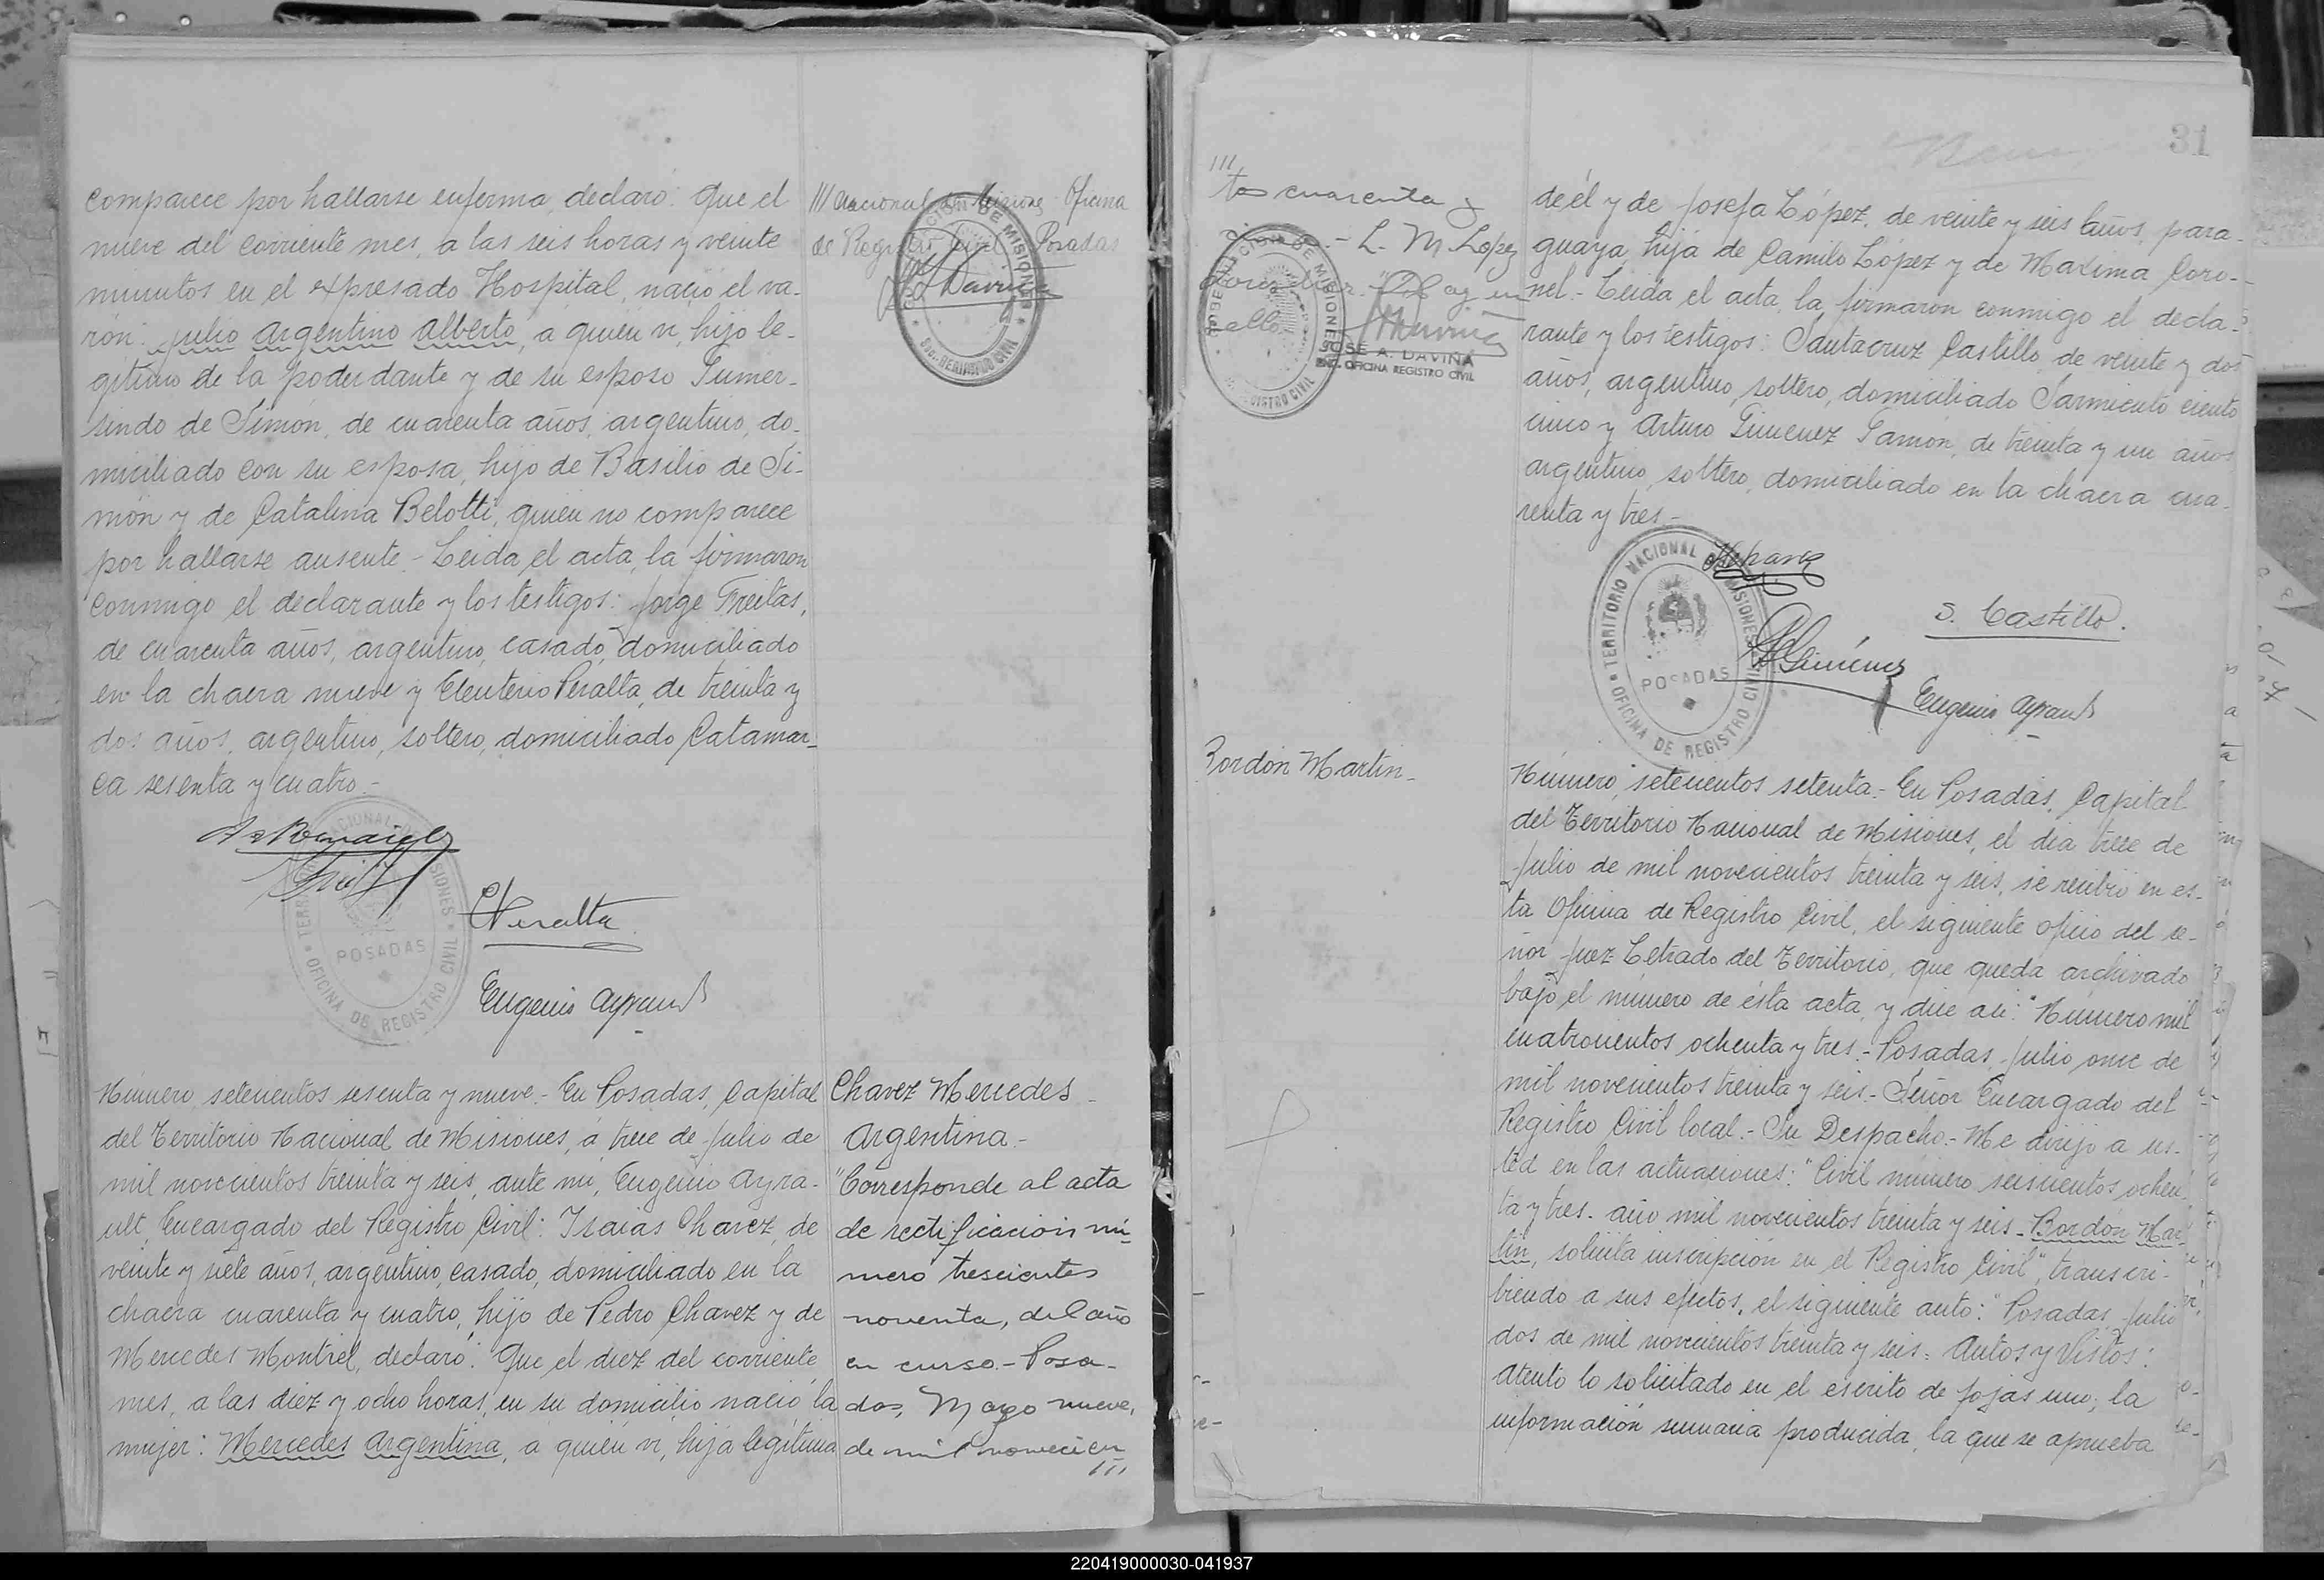 comparece por hallarse enferma, declaró: Que el
nueve del corriente mes, a las seis horas y veinte
minutos en el expresado Hospital, nació el va-
rón: Julio Argentino Alberto, a quien vi, hijo le-
gítimo de la poderdante y de su esposo Gumer-
sindo de Simón, de cuarenta años, argentino, do-
miciliado con su esposa, hijo de Basilio de Si-
món y de Catalina Belotti, quien no comparece
por hallarse ausente.- Leida el acta, la firmaron
conmigo el declarante y los testigos: Jorge Freitas,
de cuarenta años, argentino, casado, domiciliado
en la chacra nueve y Eleuterio Peralta, de treinta y
dos años, argentino, soltero, domiciliado Catamar-
ca sesenta y cuatro.-
TERRITORIO NACIONAL DE MISIONES
POSADAS
OFICINA DE REGISTRO CIVIL
E Peralta
Eugenio Ayrault
/// Nacional de Misiones Oficina
de Registro Civil Posadas
GOBERNACION DE MISIONES
REGISTRO CIVIL
Número setecientos sesenta y nueve.- En Posadas, Capital
del Territorio Nacional de Misiones, a trece de Julio de
mil novecientos treinta y seis, ante mi, Eugenio Ayra-
ult, Encargado del Registro Civil: Isaias Chavez, de
veinte y siete años, argentino, casado, domiciliado en la
chacra cuarenta y cuatro, hijo de Pedro Chavez y de
Mercedes Montiel, declaró: Que el diez del corriente
mes, a las diez y ocho horas, en su domicilio nació la
mujer: Mercedes Argentina, a quien vi, hija legítima
Chavez Mercedes
Argentina.-
"Corresponde al acta
de rectificación nú-
mero trescientos
noventa, del año
en curso.- Posa-
das, Mayo nueve,
de mil novecien
///
31
///
tos cuarenta y
.- L. M. Lopez
GOBERNACION DE MISIONES
REGISTRO CIVIL
JOSE A. DAVIÑA
ENC. OFICINA REGISTRO CIVIL
de él y de Josefa López, de veinte y seis años, para-
guaya, hija de Camilo López y de Maxima Coro-
nel.- Leida el acta, la firmaron conmigo el decla-
rante y los testigos: Santacruz Castillo, de veinte y dos
años, argentino, soltero, domiciliado Sarmiento ciento
cinco y Arturo Gimenez Ramón, de treinta y un años
argentino, soltero, domiciliado en la chacra cua-
renta y tres.-
TERRITORIO NACIONAL DE MISIONES
POSADAS
OFICINA DE REGISTRO CIVIL
S. Castillo.
Giménez
Eugenio Ayrault
Bordón Martín-
Número setecientos setenta.- En Posadas, Capital
del Territorio Nacional de Misiones, el dia trece de
Julio de mil novecientos treinta y seis, se recibió en es-
ta Oficina de Registro Civil, el siguiente oficio del se-
ñor Juez Letrado del Territorio, que queda archivado
bajo el número de ésta acta, y dice asi: "Número mil
cuatrocientos ochenta y tres.- Posadas, Julio once de
mil novecientos treinta y seis.- Señor Encargado del
Registro Civil local.- Su Despacho.- Me dirijo a us-
ted en las actuaciones: "Civil número seiscientos ochen
ta y tres. año mil novecientos treinta y seis - Bordón Mar
tín, solicita inscripción en el Registro Civil", transcri-
biendo a sus efectos, el siguiente auto: "Posadas, Julio
dos de mil novecientos treinta y seis: Autos y Vistos:
Atento lo solicitado en el escrito de fojas uno; la
información sumaria producida, la que se aprueba
220419000030-041937